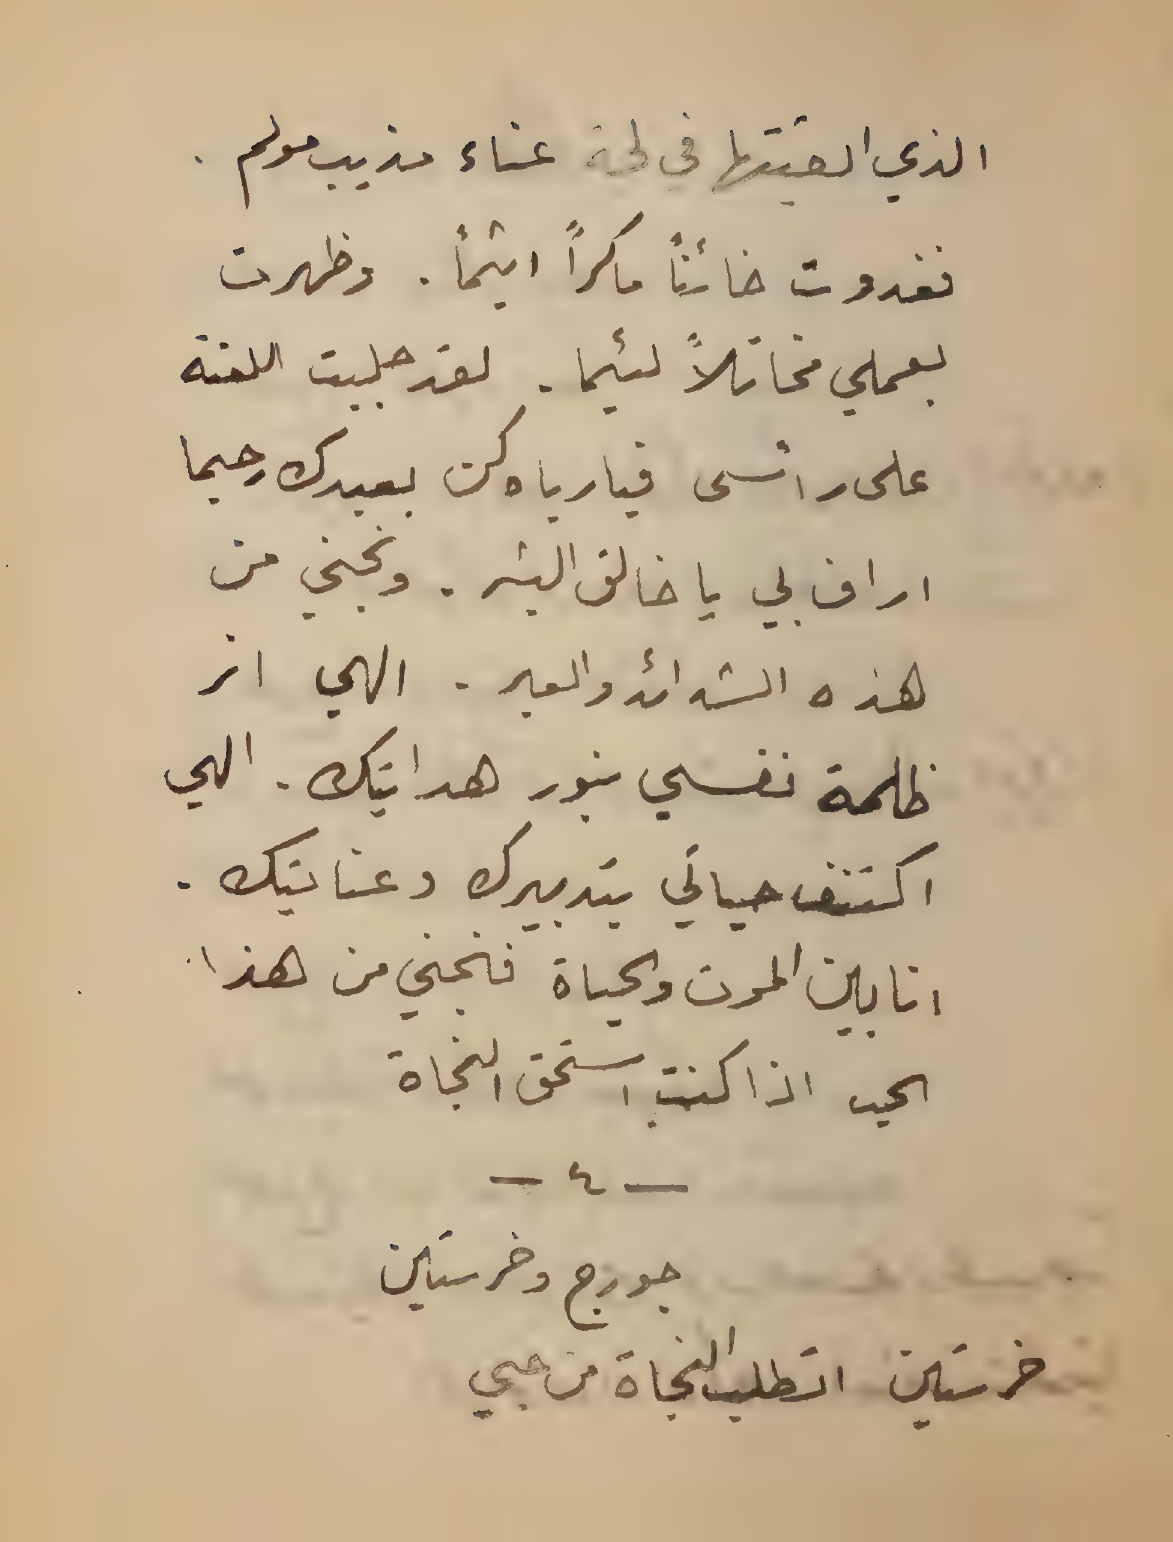 الذي القيتها في لجة عناء مذيب مولم .
فغدوت خائناً ماكراً اثيماً . وظهرت
بعملي مخاتلاً لئيما . لقد جلبت اللعنة
على رأسى فيارباه كن بعبدك رحيما
اراف بي يا خالق البشر . ونجني من
هذه الشدائد والعبر . الهي انر
ظلمة نفسي بنور هدايتك . الهي
اكتنف حياتي بتدبيرك وعنايتك .
انا بين الموت والحياة فنجني من هذا
الحب اذا كنت استحق النجاة
— ٤ —
جورج وخرستين
خرستين اتطلب النجاة من حبي